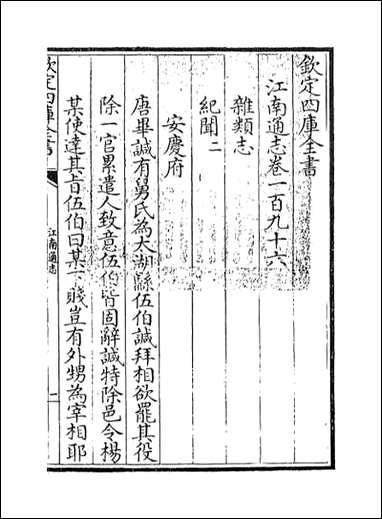 欽定四庫全書
江南通志卷一百九十六
雜類志
紀聞二
安慶府
唐畢諴有舅氏為太湖縣伍伯諴拜相欲罷其役
除一官累遣人致意伍伯皆固辭諴特除邑令楊
某使達其旨伍伯曰某下賤豈有外甥為宰相耶
欽定四庫全書
江南通志